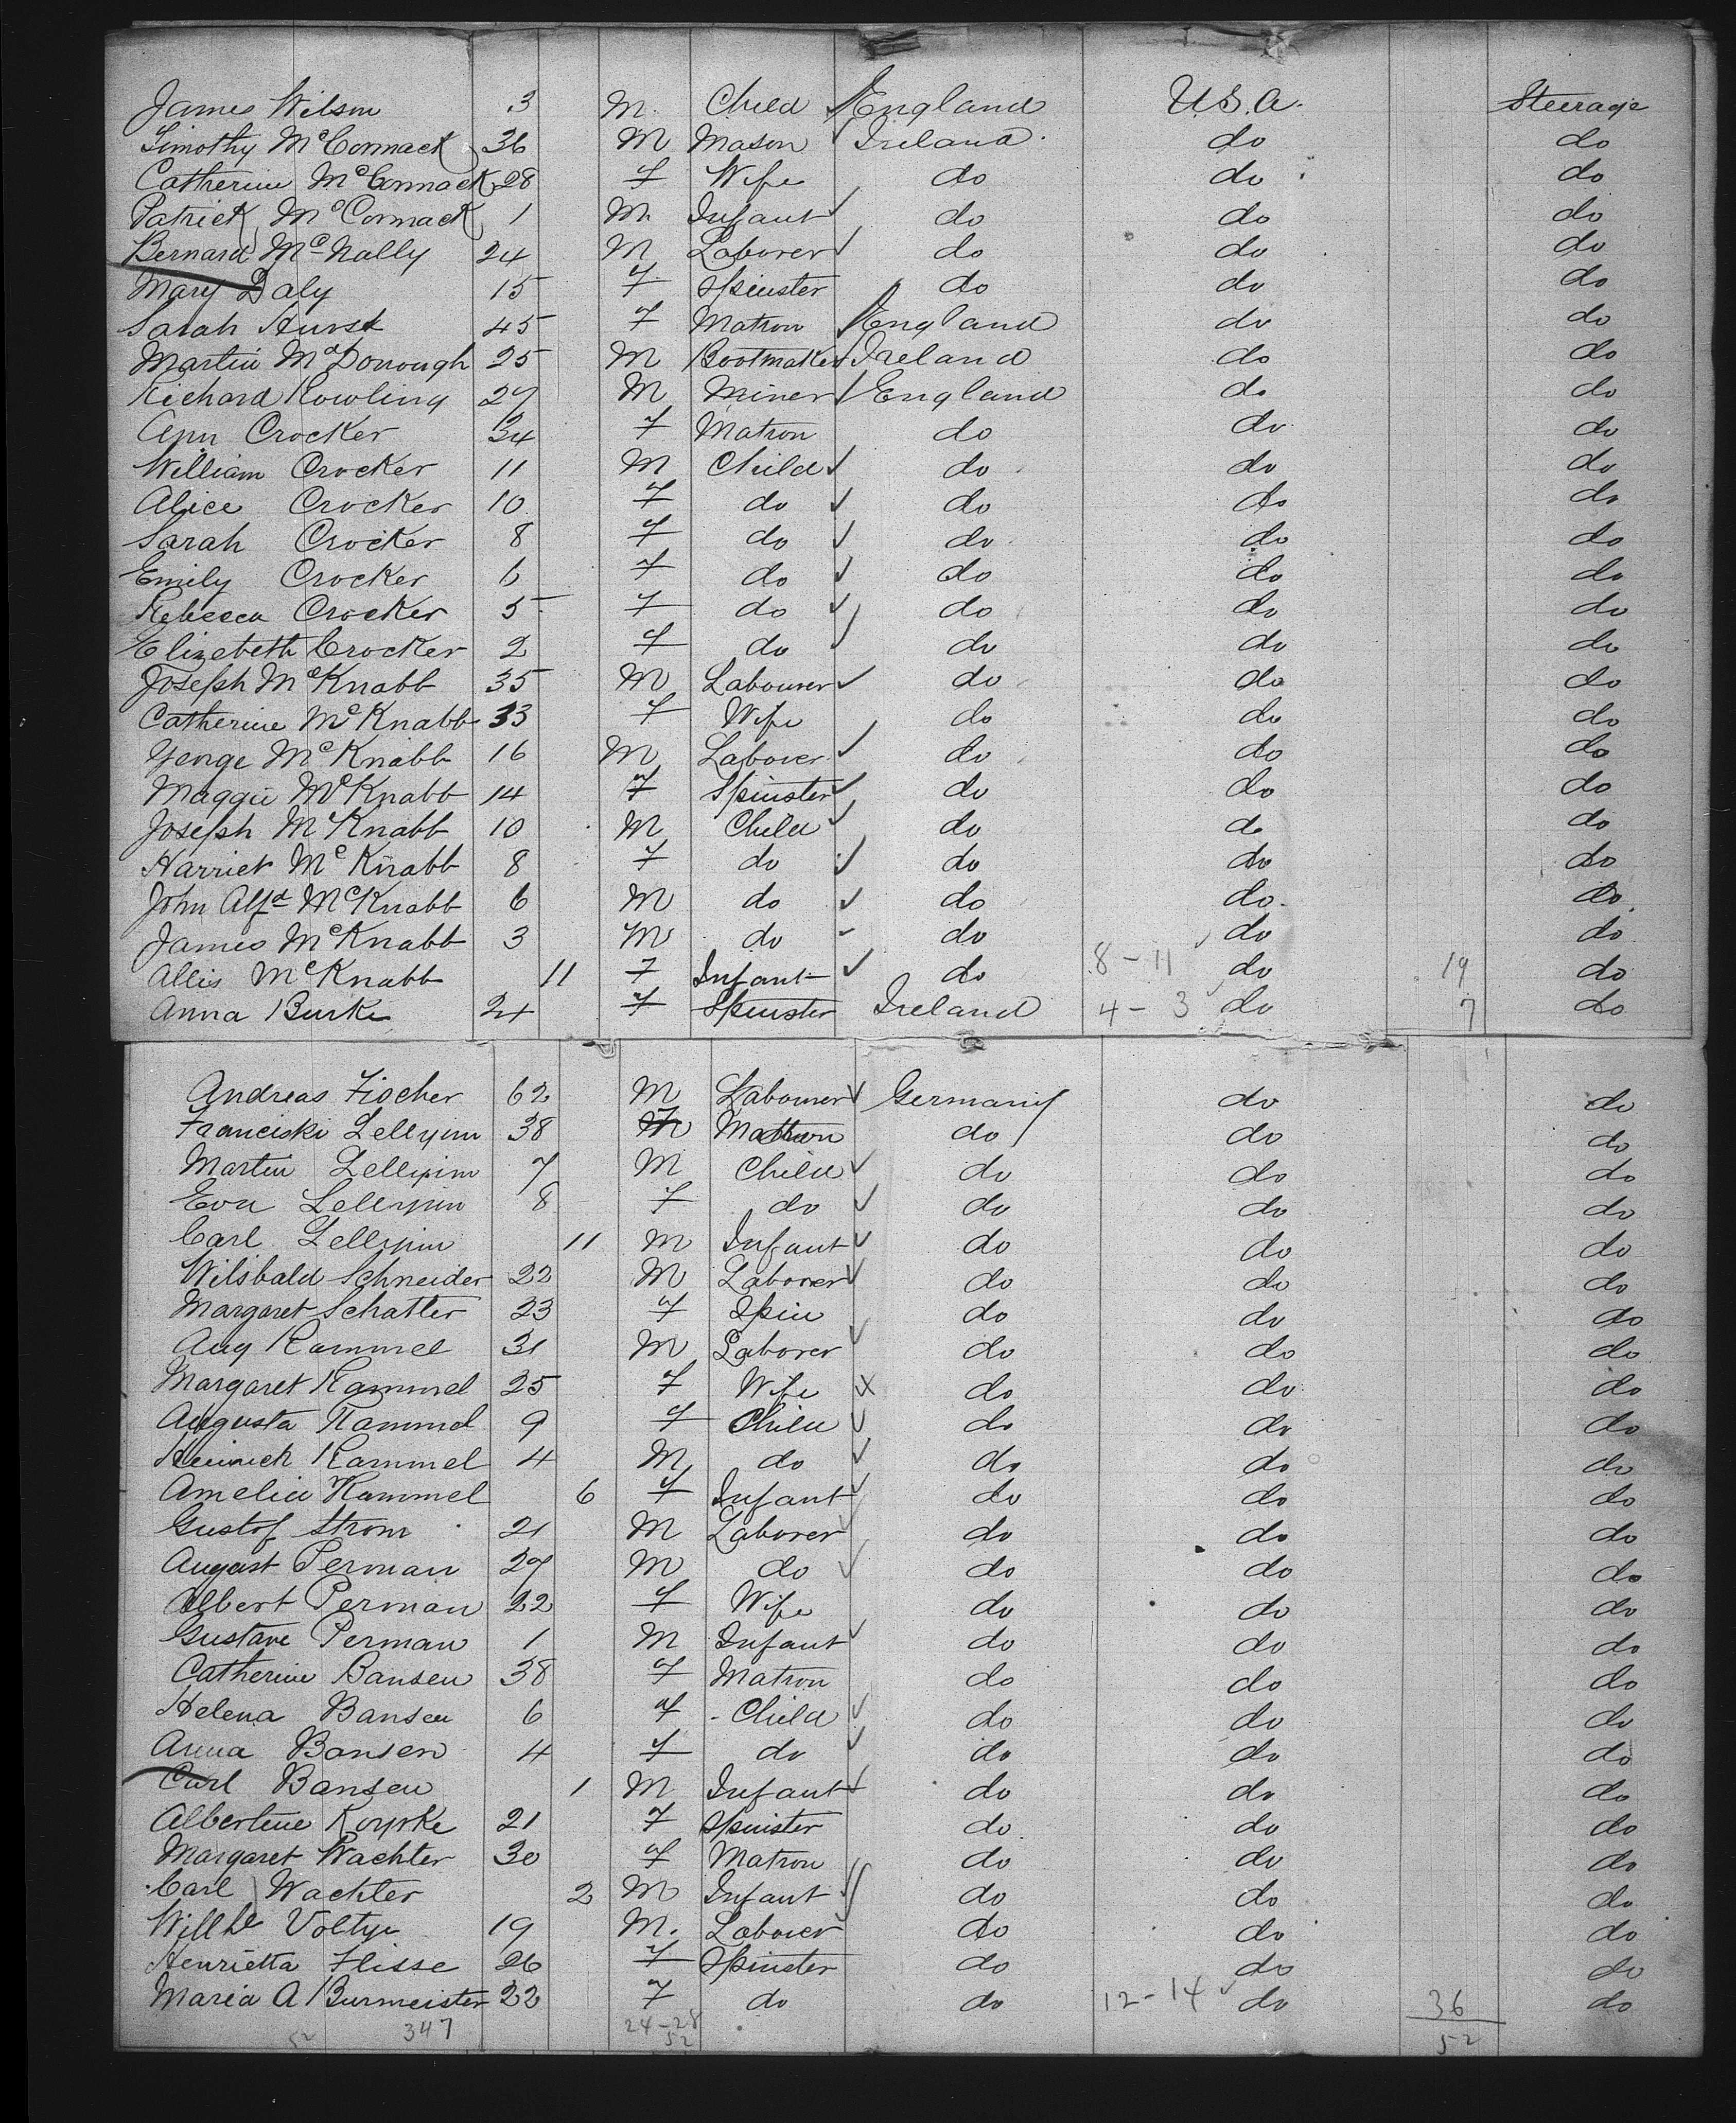 James Wilson 3 M. Child England U.S.A. Steerage
Timothy McCormack 36 M Mason Ireland do do
Catherine McCormack 28 F Wife do do do
Patrick McCormack 1 M. Infant do do do
Bernard McNally 24 M Laborer do do do
Mary Daly 15 F Spinster do do do
Sarah Hurst 45 F Matron England do do
Martin McDonough 25 M Bootmaker Ireland do do
Richard Rowling 27 M Miner England do do
Ann Crocker 34 F Matron do do do
William Crocker 11 M Child do do do
Alice Crocker 10 F do do do do
Sarah Crocker 8 F do do do do
Emily Crocker 6 F do do do do
Rebecca Crocker 5 F do do do do
Elizebeth Crocker 2 F do do do do
Joseph McKnabb 35 M Labourer do do do
Catherine McKnabb 33 F Wife do do do
George McKnabb 16 M Laborer do do do
Maggie McKnabb 14 F Spinster do do do
Joseph McKnabb 10 M Child do do do
Harriet McKnabb 8 F do do do do
John Alfd McKnabb 6 M do do do do
James McKnabb 3 M do do do do
Allis McKnabb 11 F Infant do 8-11 do 19 do
Anna Burke 24 F Spinster Ireland 4-3 do 7 do
Andreas Fischer 62 M Labourer Germany do do
Franciski 38 F Matron do do do
Martin 7 M Child do do do
Eva 8 F do do do do
Carl 11 M Infant do do do
Wilsbald Schneider 22 M Laborer do do do
Margaret Schatler 23 F Spin do do do
Aug Rammel 31 M Laborer do do do
Margaret Rammel 25 F Wife do do do
Augusta Rammel 9 F Child do do do
Heinrich Rammel 4 M do do do do
Amelia Rammel 6 F Infant do do do
Gustof Strom 21 M Laborer do do do
August Perman 27 M do do do do
Albert Perman 22 F Wife do do do
Gustave Perman 1 M Infant do do do
Catherine Bansen 38 F Matron do do do
Helena Bansen 6 F Child do do do
Anna Bansen 4 F do do do do
Carl Bansen 1 M Infant do do do
Albertine 21 F Spinster do do do
Margaret Wachter 30 F Matron do do do
Carl Wachter 2 M Infant do do do
Willhe 19 M. Laborer do do do
Henrietta Flisse 26 F Spinster do do do
Maria A Burmeister 22 F do do 12-14 do 36 do
52 347 24-28 52 52